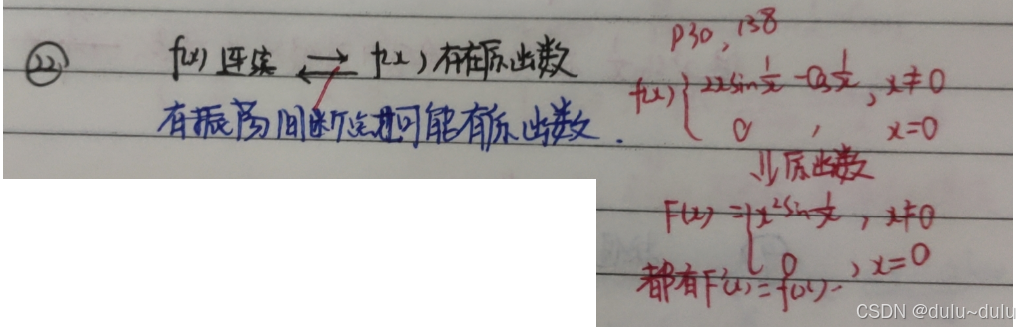 ㉒ f(x)连续 ⇄ f(x)存在原函数
有振荡间断点也可能有原函数.
P30, 138
f(x) { 2xsin 1/x - cos 1/x, x≠0
0, x=0
⇓原函数
F(x) = { x²sin 1/x, x≠0
0, x=0
都有F'(x)=f(x).
CSDN @dulu~dulu